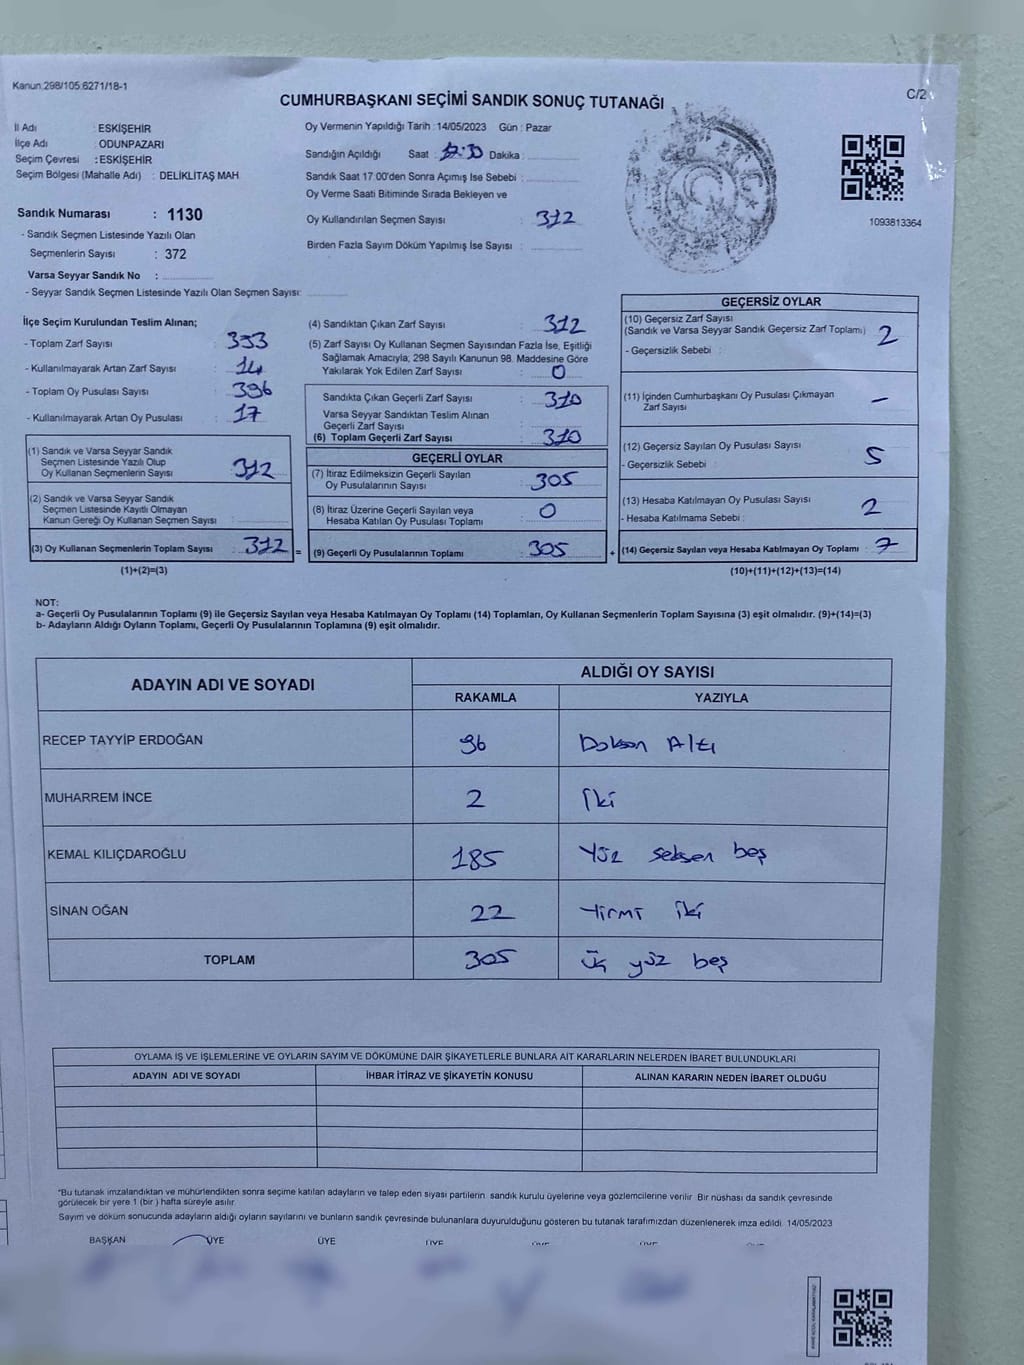 Kanun:298/105:6271/18-1
C/2
CUMHURBAŞKANI SEÇİMİ SANDIK SONUÇ TUTANAĞI
İl Adı : ESKİŞEHİR
İlçe Adı : ODUNPAZARI
Seçim Çevresi : ESKİŞEHİR
Seçim Bölgesi (Mahalle Adı) : DELİKLİTAŞ MAH
Sandık Numarası : 1130
- Sandık Seçmen Listesinde Yazılı Olan
Seçmenlerin Sayısı : 372
Varsa Seyyar Sandık No :
- Seyyar Sandık Seçmen Listesinde Yazılı Olan Seçmen Sayısı:
Oy Vermenin Yapıldığı Tarih : 14/05/2023 Gün : Pazar
Sandığın Açıldığı Saat : Dakika :
Sandık Saat 17:00'den Sonra Açımış İse Sebebi :
Oy Verme Saati Bitiminde Sırada Bekleyen ve
Oy Kullandırılan Seçmen Sayısı : 312
Birden Fazla Sayım Döküm Yapılmış İse Sayısı :
1093813364
İlçe Seçim Kurulundan Teslim Alınan;
- Toplam Zarf Sayısı : 393
- Kullanılmayarak Artan Zarf Sayısı : 14
- Toplam Oy Pusulası Sayısı : 396
- Kullanılmayarak Artan Oy Pusulası : 17
(1) Sandık ve Varsa Seyyar Sandık
Seçmen Listesinde Yazılı Olup
Oy Kullanan Seçmenlerin Sayısı : 312
(2) Sandık ve Varsa Seyyar Sandık
Seçmen Listesinde Kayıtlı Olmayan
Kanun Gereği Oy Kullanan Seçmen Sayısı :
(3) Oy Kullanan Seçmenlerin Toplam Sayısı : 312 =
(1)+(2)=(3)
(4) Sandıktan Çıkan Zarf Sayısı : 312
(5) Zarf Sayısı Oy Kullanan Seçmen Sayısından Fazla İse, Eşitliği
Sağlamak Amacıyla, 298 Sayılı Kanunun 98. Maddesine Göre
Yakılarak Yok Edilen Zarf Sayısı : 0
Sandıkta Çıkan Geçerli Zarf Sayısı : 310
Varsa Seyyar Sandıktan Teslim Alınan
Geçerli Zarf Sayısı :
(6) Toplam Geçerli Zarf Sayısı : 310
GEÇERLİ OYLAR
(7) İtiraz Edilmeksizin Geçerli Sayılan
Oy Pusulalarının Sayısı : 305
(8) İtiraz Üzerine Geçerli Sayılan veya
Hesaba Katılan Oy Pusulası Toplamı : 0
(9) Geçerli Oy Pusulalarının Toplamı : 305 +
GEÇERSİZ OYLAR
(10) Geçersiz Zarf Sayısı
(Sandık ve Varsa Seyyar Sandık Geçersiz Zarf Toplamı) : 2
- Geçersizlik Sebebi :
(11) İçinden Cumhurbaşkanı Oy Pusulası Çıkmayan
Zarf Sayısı : –
(12) Geçersiz Sayılan Oy Pusulası Sayısı : 5
- Geçersizlik Sebebi :
(13) Hesaba Katılmayan Oy Pusulası Sayısı : 2
- Hesaba Katılmama Sebebi :
(14) Geçersiz Sayılan veya Hesaba Katılmayan Oy Toplamı : 7
(10)+(11)+(12)+(13)=(14)
NOT:
a- Geçerli Oy Pusulalarının Toplamı (9) ile Geçersiz Sayılan veya Hesaba Katılmayan Oy Toplamı (14) Toplamları, Oy Kullanan Seçmenlerin Toplam Sayısına (3) eşit olmalıdır. (9)+(14)=(3)
b- Adayların Aldığı Oyların Toplamı, Geçerli Oy Pusulalarının Toplamına (9) eşit olmalıdır.
ADAYIN ADI VE SOYADI
ALDIĞI OY SAYISI
RAKAMLA YAZIYLA
RECEP TAYYİP ERDOĞAN 96 Doksan Altı
MUHARREM İNCE 2 İki
KEMAL KILIÇDAROĞLU 185 Yüz seksen beş
SİNAN OĞAN 22 Yirmi iki
TOPLAM 305 üç yüz beş
OYLAMA İŞ VE İŞLEMLERİNE VE OYLARIN SAYIM VE DÖKÜMÜNE DAİR ŞİKAYETLERLE BUNLARA AİT KARARLARIN NELERDEN İBARET BULUNDUKLARI
ADAYIN ADI VE SOYADI İHBAR İTİRAZ VE ŞİKAYETİN KONUSU ALINAN KARARIN NEDEN İBARET OLDUĞU
*Bu tutanak imzalandıktan ve mühürlendikten sonra seçime katılan adayların ve talep eden siyasi partilerin sandık kurulu üyelerine veya gözlemcilerine verilir. Bir nüshası da sandık çevresinde
görülecek bir yere 1 (bir) hafta süreyle asılır.
Sayım ve döküm sonucunda adayların aldığı oyların sayılarını ve bunların sandık çevresinde bulunanlara duyurulduğunu gösteren bu tutanak tarafımızdan düzenlenerek imza edildi. 14/05/2023
BAŞKAN ÜYE ÜYE ÜYE